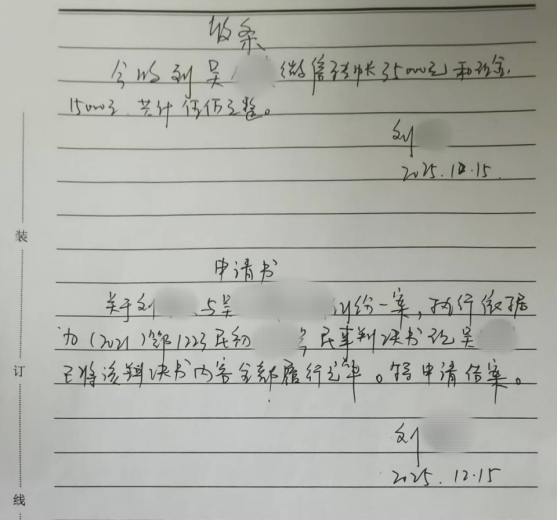 收条
今收到吴 微信转帐35000元和现金
15000元，共计伍万元整。
刘
2025.12.15.
申请书
关于刘 与吴 纠纷一案，执行依据
为（2021）鄂1223民初 号民事判决书，现吴
已将该判决书内容全部履行完毕。特申请结案。
刘
2025.12.15
装
订
线